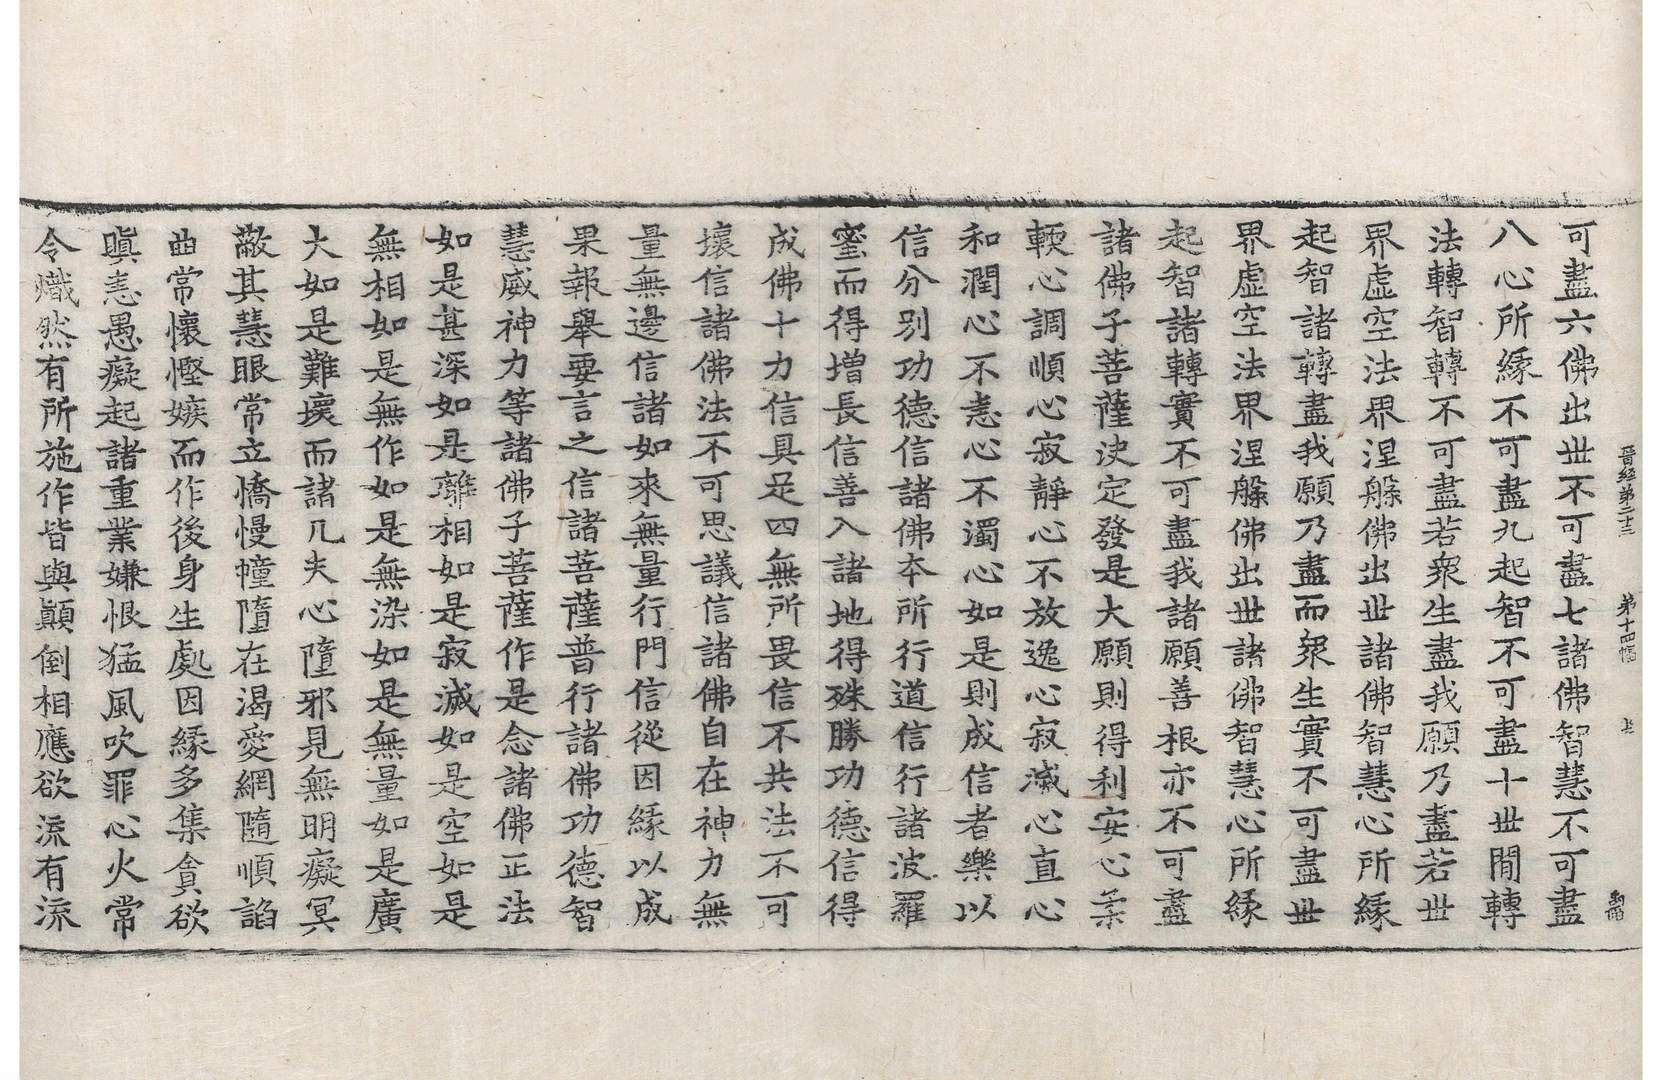 晉経第二十三 第十四幅
可盡六佛出世不可盡七諸佛智慧不可盡
八心所緣不可盡九起智不可盡十世間轉
法轉智轉不可盡若衆生盡我願乃盡若世
界虛空法界涅槃佛出世諸佛智慧心所緣
起智諸轉盡我願乃盡而衆生實不可盡世
界虛空法界涅槃佛出世諸佛智慧心所緣
起智諸轉實不可盡我諸願善根亦不可盡
諸佛子菩薩決定發是大願則得利安心柔
輭心調順心寂靜心不放逸心寂滅心直心
和潤心不恚心不濁心如是則成信者樂以
信分別功德信諸佛本所行道信行諸波羅
蜜而得增長信善入諸地得殊勝功德信得
成佛十力信具足四無所畏信不共法不可
壞信諸佛法不可思議信諸佛自在神力無
量無邊信諸如來無量行門信從因緣以成
果報舉要言之信諸菩薩普行諸佛功德智
慧威神力等諸佛子菩薩作是念諸佛正法
如是甚深如是離相如是寂滅如是空如是
無相如是無作如是無染如是無量如是廣
大如是難壞而諸凡夫心墮邪見無明癡冥
蔽其慧眼常立憍慢幢墮在渴愛網隨順諂
曲常懷慳嫉而作後身生處因緣多集貪欲
瞋恚愚癡起諸重業嫌恨猛風吹罪心火常
令熾然有所施作皆與顚倒相應欲流有流